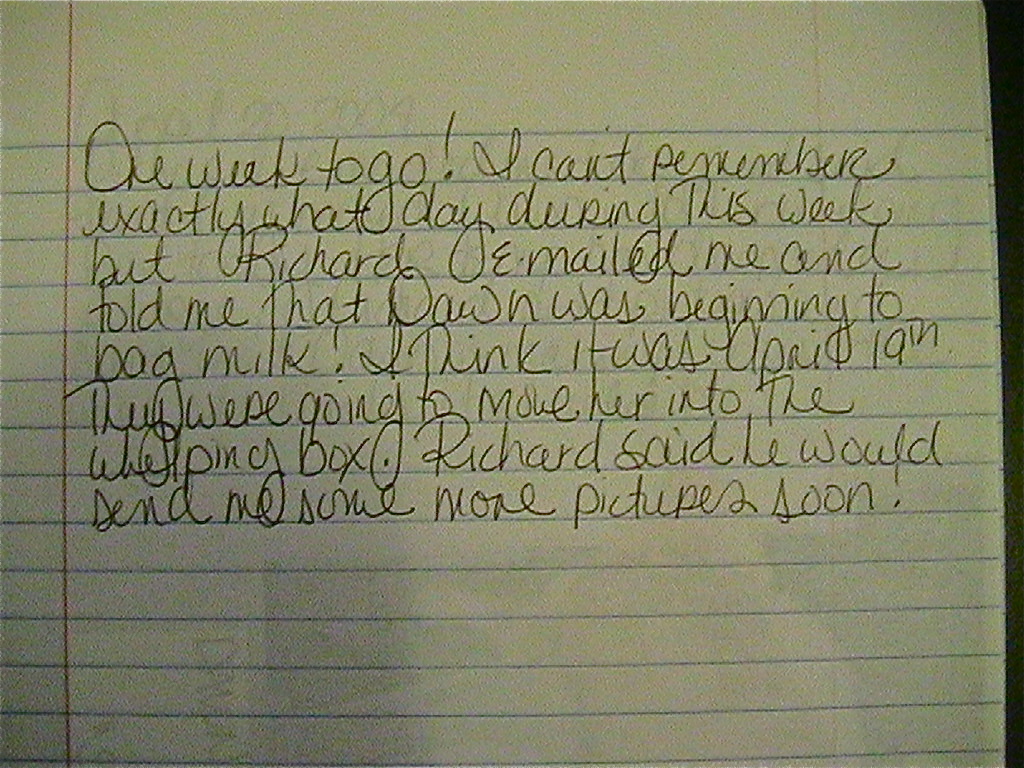 One week to go! I can't remember
exactly what day during this week
but Richard E-mailed me and
told me that Dawn was beginning to
bag milk! I think it was April 19th
They were going to move her into the
whelping box. Richard said he would
send me some more pictures soon!